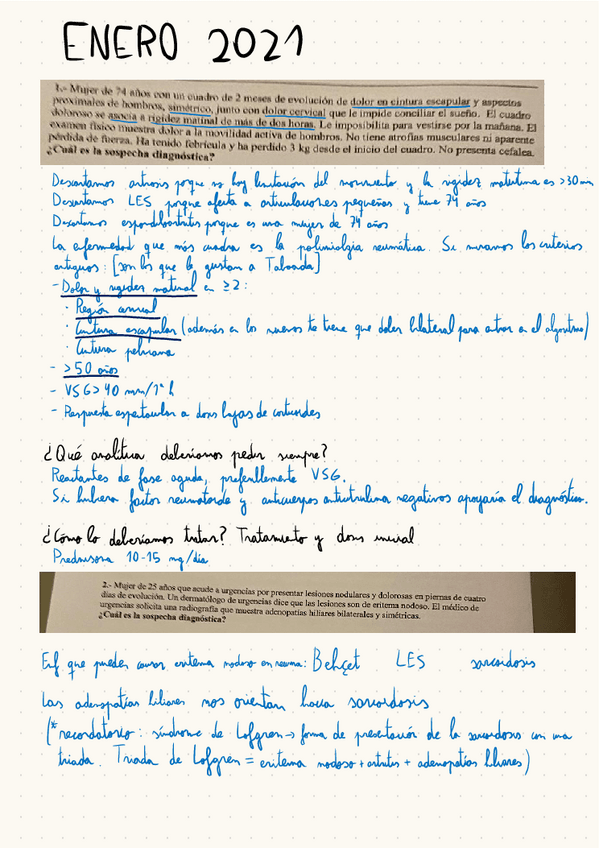 ENERO 2021
1.- Mujer de 74 años con un cuadro de 2 meses de evolución de dolor en cintura escapular y aspectos
proximales de hombros, simétrico, junto con dolor cervical que le impide conciliar el sueño. El cuadro
doloroso se asocia a rigidez matinal de más de dos horas. Le imposibilita para vestirse por la mañana. El
examen físico muestra dolor a la movilidad activa de hombros. No tiene atrofias musculares ni aparente
pérdida de fuerza. Ha tenido febrícula y ha perdido 3 kg desde el inicio del cuadro. No presenta cefalea.
¿Cuál es la sospecha diagnóstica?
Descartamos artrosis porque no hay limitación del movimiento y la rigidez matutina es >30 min
Descartamos LES porque afecta a articulaciones pequeñas y tiene 74 años
Descartamos espondiloartritis porque es una mujer de 74 años
La enfermedad que más cuadra es la polimialgia reumática. Si miramos los criterios
antiguos: [son los que le gustan a Taboada]
- Dolor y rigidez matinal en ≥2:
· Región cervical
· Cintura escapular (además en los nuevos te tiene que doler bilateral para entrar en el algoritmo)
· Cintura pelviana
- >50 años
- VSG>40 mm/1ª h
- Respuesta espectacular a dosis bajas de corticoides
¿Qué analítica deberíamos pedir siempre?
Reactantes de fase aguda, preferiblemente VSG.
Si hubiera factor reumatoide y anticuerpos anticitrulina negativos apoyaría el diagnóstico.
¿Cómo lo deberíamos tratar? Tratamiento y dosis inicial
Prednisona 10-15 mg/día
2.- Mujer de 25 años que acude a urgencias por presentar lesiones nodulares y dolorosas en piernas de cuatro
días de evolución. Un dermatólogo de urgencias dice que las lesiones son de eritema nodoso. El médico de
urgencias solicita una radiografía que muestra adenopatías hiliares bilaterales y simétricas.
¿Cuál es la sospecha diagnóstica?
Enf que pueden causar eritema nodoso en reuma: Behçet LES sarcoidosis
Las adenopatías hiliares nos orientan hacia sarcoidosis
(*recordatorio: síndrome de Lofgren → forma de presentación de la sarcoidosis con una
triada. Triada de Lofgren = eritema nodoso + artritis + adenopatías hiliares)